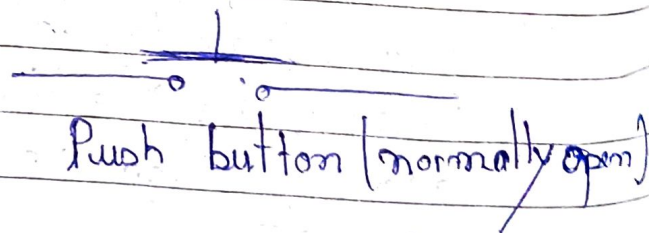 Push button (normally open)